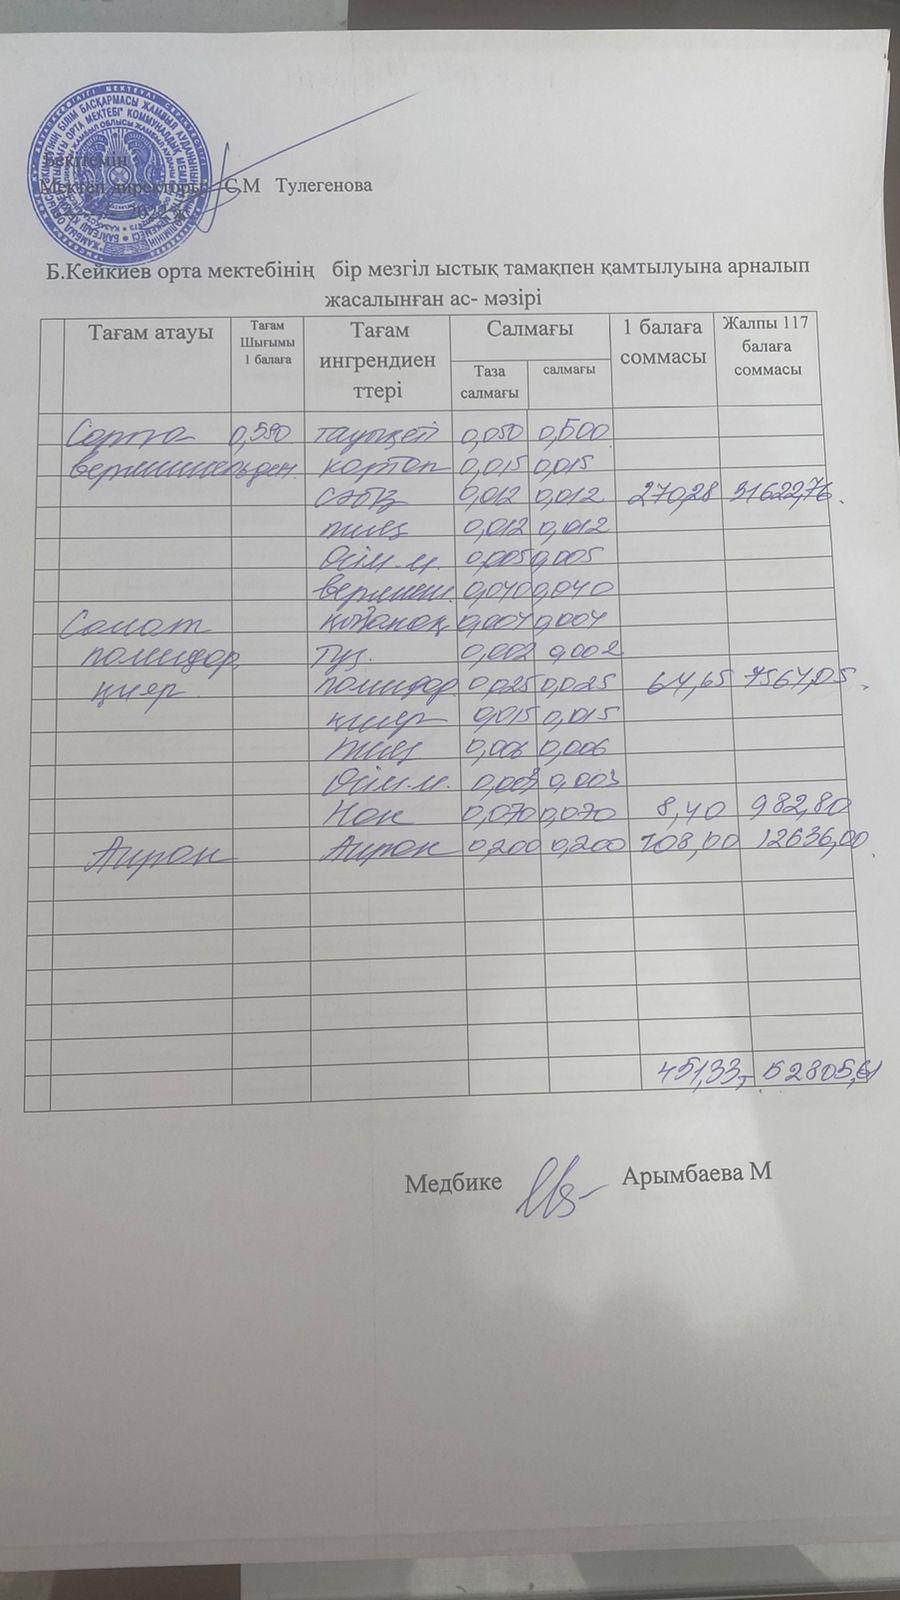 Бекітемін
Мектеп директоры С.М Тулегенова
2022 ж
Б.Кейкиев орта мектебінің бір мезгіл ыстық тамақпен қамтылуына арналып
жасалынған ас- мәзірі
Тағам атауы Тағам Шығымы 1 балаға Тағам ингрендиен ттері Салмағы 1 балаға соммасы Жалпы 117 балаға соммасы
Таза салмағы салмағы
Сорпа 0,590 тауықеті 0,050 0,500
вермишельден. картоп 0,015 0,015
сәбіз 0,012 0,012 270,28 31622,76.
пияз 0,012 0,012
Өсім.м. 0,005 0,005
вермиш. 0,040 0,040
Салат 0,004 0,004
помидор, тұз. 0,002 0,002
қияр. помидор 0,025 0,025 64,65 7564,05.
қияр 0,015 0,015
пияз 0,006 0,006
Өсім.м. 0,003 0,003
Нан 0,070 0,070 8,40 982,80
Айран Айран 0,200 0,200 108,00 12636,00.
451,33 52805,61
Медбике Арымбаева М